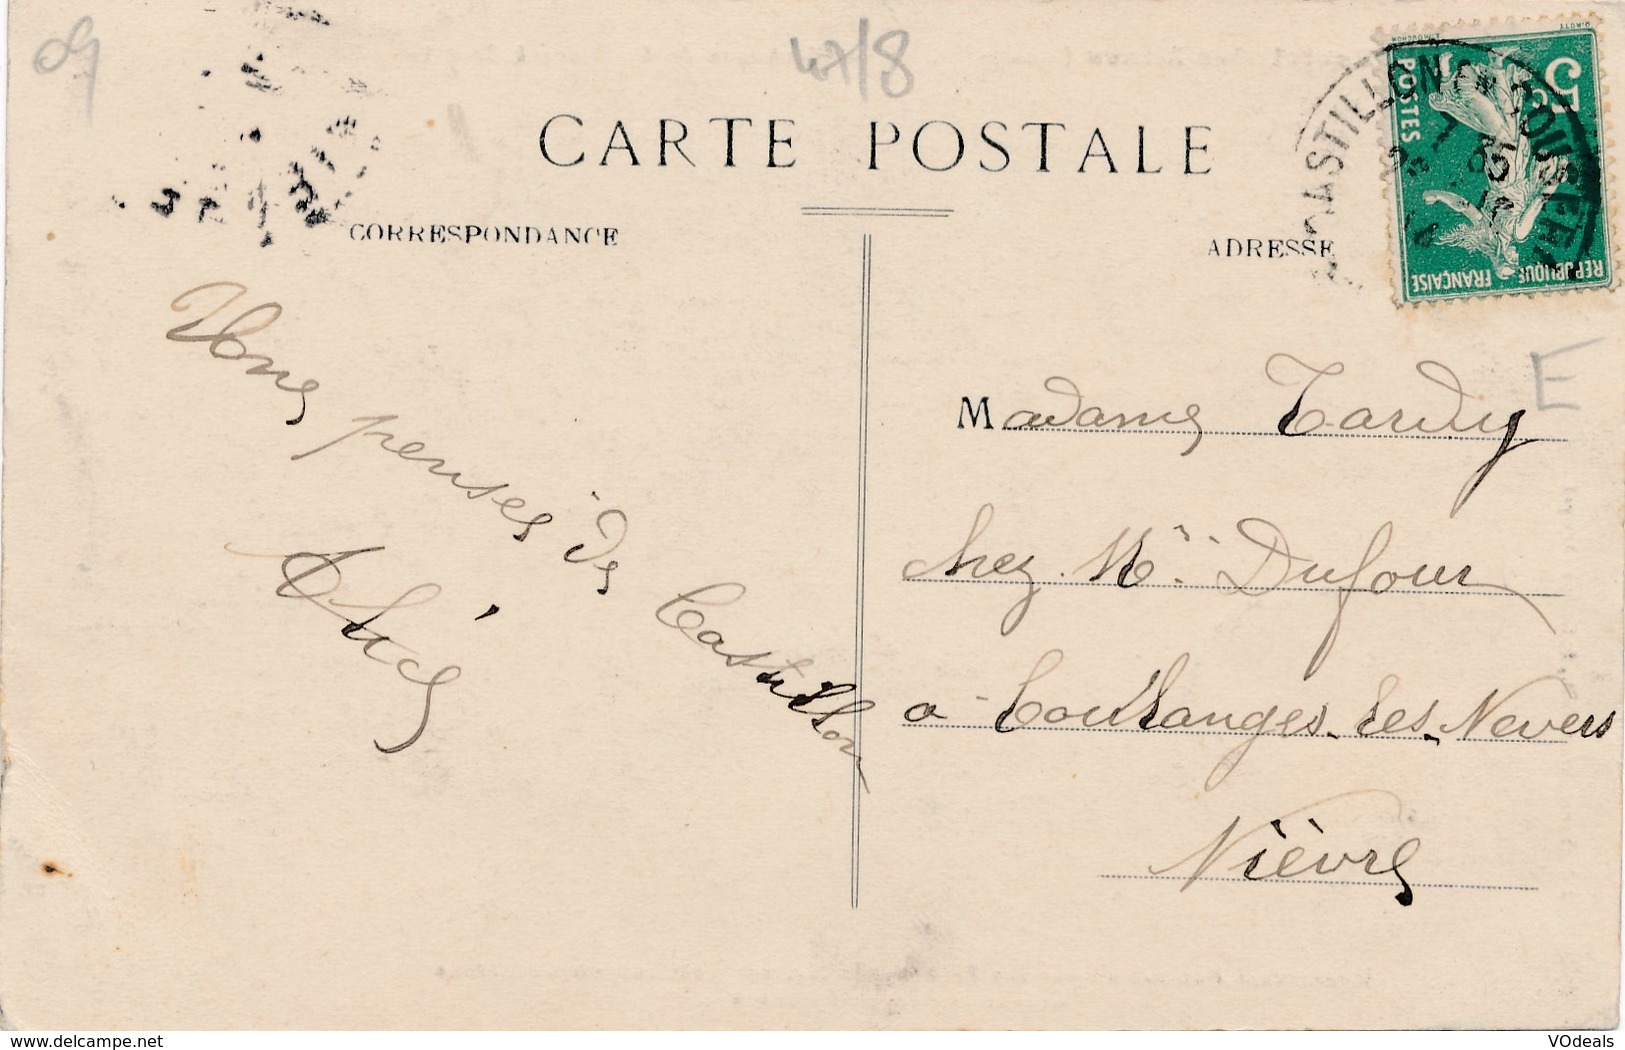 09
47/8
CARTE POSTALE
CORRESPONDANCE
ADRESSE
5c
POSTES
REPUBLIQUE FRANÇAISE
E
Madame Tardy
chez Mr Dufour
a Coulanges-les-Nevers
Nièvre
Bons
penses de
Castillon
www.delcampe.net
VOdeals